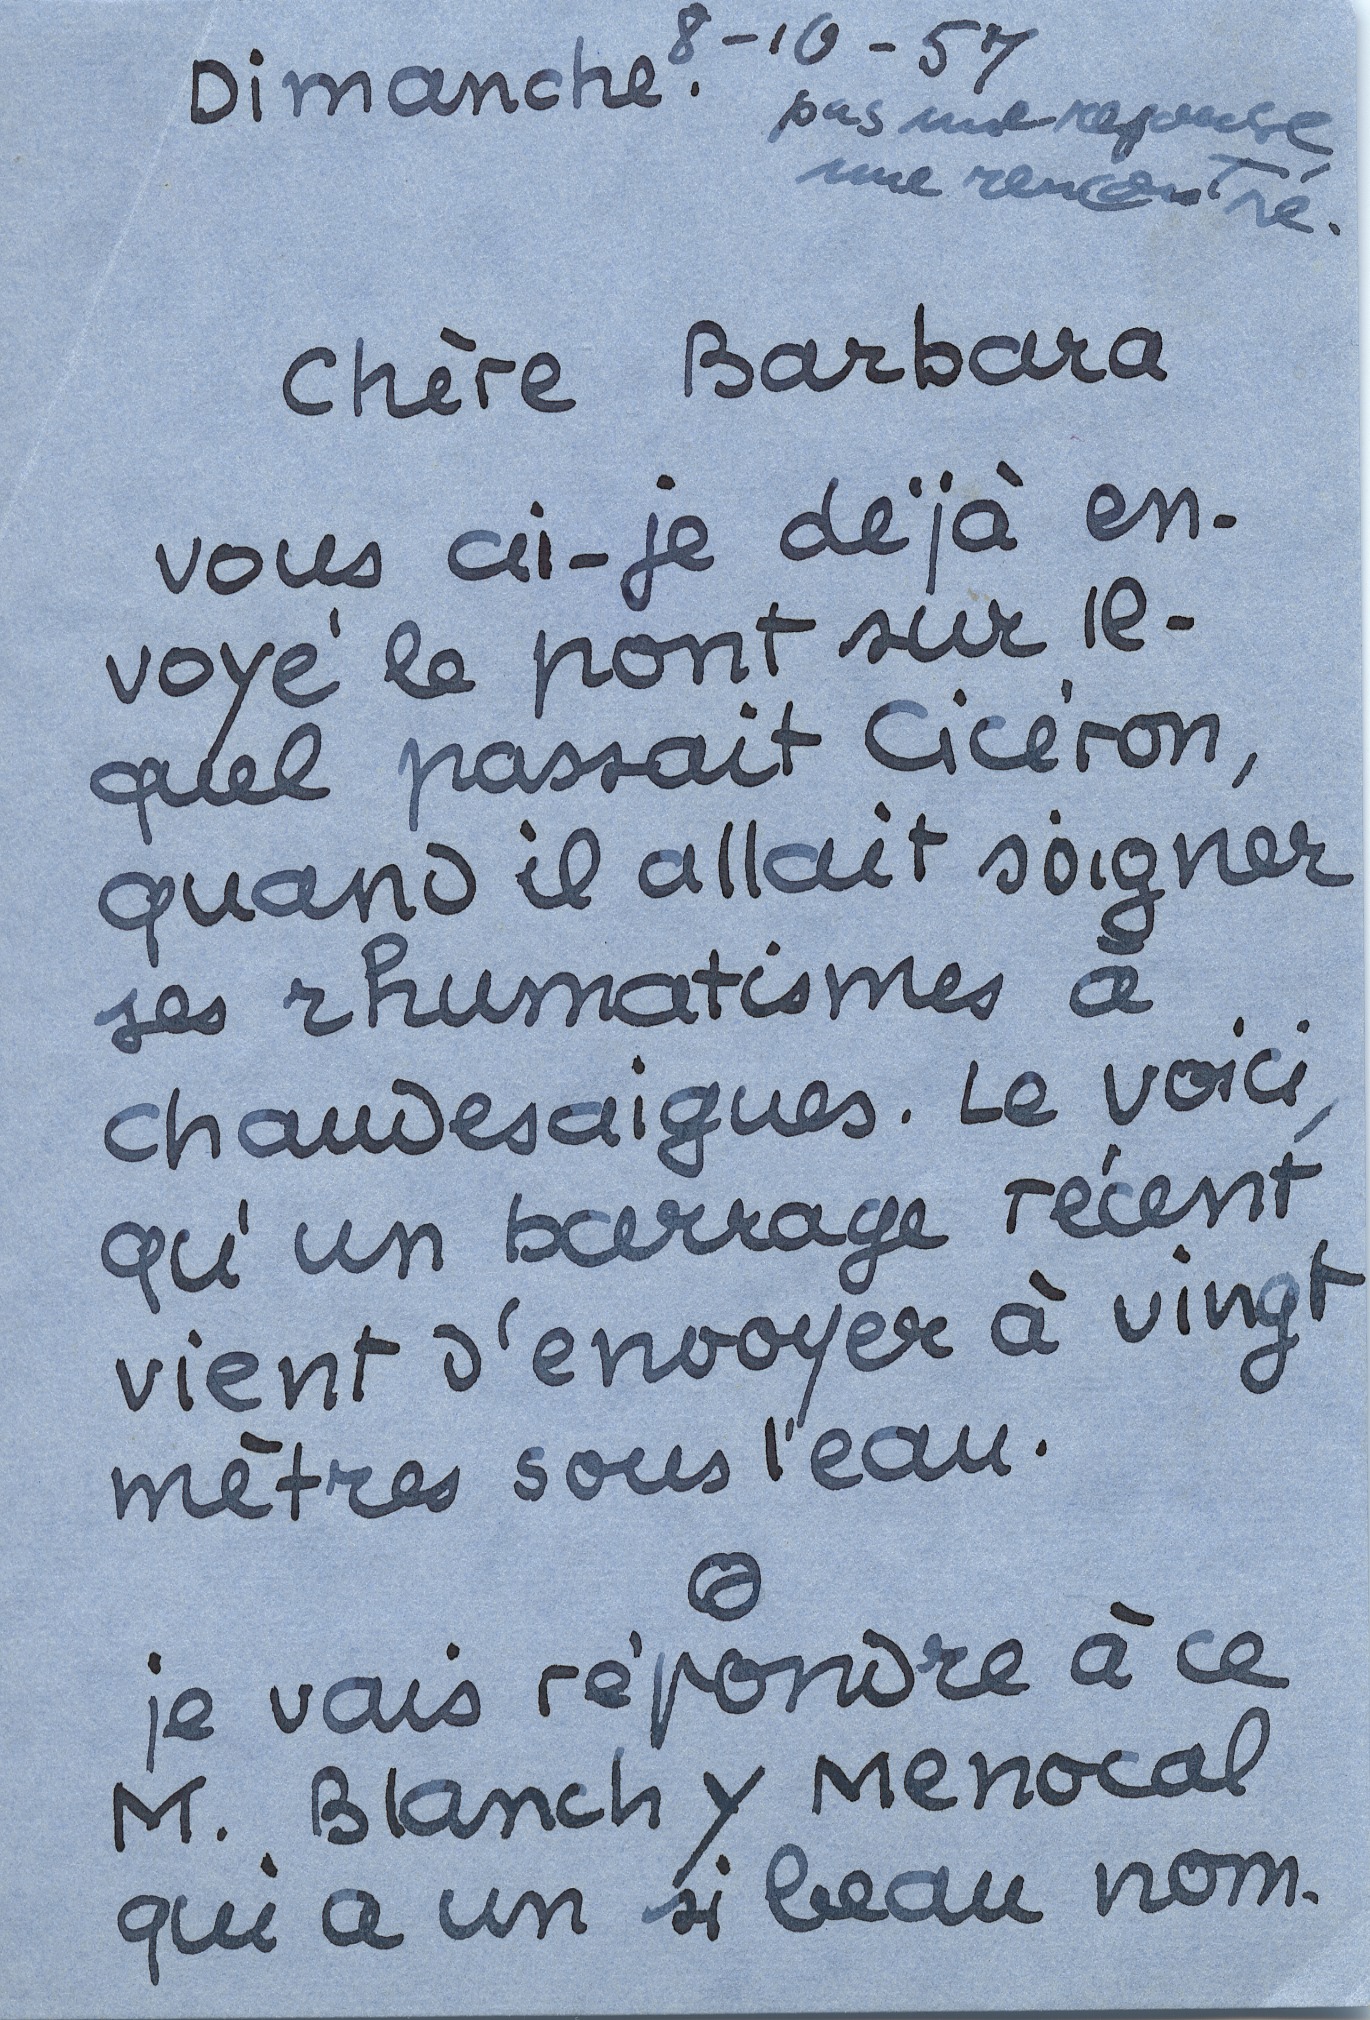 Dimanche. 8-10-57
pas une reponse
une rencontre.
Chère Barbara
vous ai-je déjà en-
voyé le pont sur le-
quel passait Cicéron,
quand il allait soigner
ses rhumatismes à
chaudesaigues. Le voici,
qu'un barrage récent
vient d'envoyer à vingt
mètres sous l'eau.
je vais répondre à ce
M. Blanch y Menocal
qui a un si beau nom.